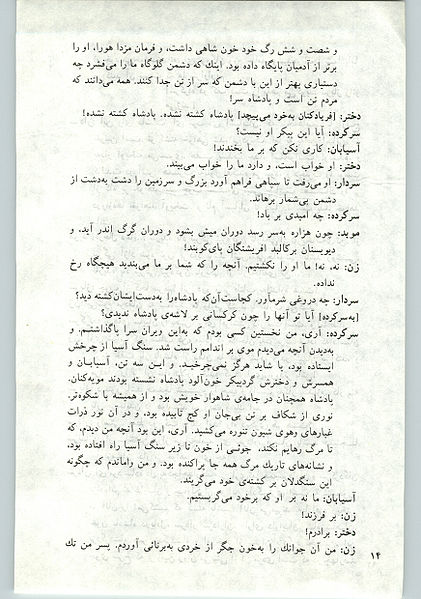 و شصت و شش رگ خود خون شاهی داشت، و فرمان مزدا هورا، او را
برتر از آدمیان پایگاه داده بود. اینك که دشمن گلوگاه ما را می‌فشرد چه
دستیاری بهتر از این با دشمن که سر از تن جدا کنند. همه می‌دانند که
مردم تن است و پادشاه سر!
دختر: [فریادکنان به‌خود می‌پیچد] پادشاه کشته نشده. پادشاه کشته نشده!
سرکرده: آیا این پیکر او نیست؟
آسیابان: کاری نکن که بر ما بخندند!
دختر: او خواب است، و دارد ما را خواب می‌بیند.
سردار: او می‌رفت تا سپاهی فراهم آورد بزرگ و سرزمین را دشت به‌دشت از
دشمن بی‌شمار برهاند.
سرکرده: چه امیدی بر باد!
موبد: چون هزاره به‌سر رسد دوران میش بشود و دوران گرگ اندر آید، و
دیوستان برکالبد افریشتگان پای‌کوبند!
زن: نه، نه! ما او را نکشتیم. آنچه را که شما بر ما می‌بندید هیچگاه رخ
نداده.
سردار: چه دروغی شرم‌آور. کجاست‌آن‌که پادشاه‌را به‌دست‌ایشان‌کشته دید؟
[به‌سرکرده] آیا تو آنها را چون کرکسانی بر لاشه‌ی پادشاه ندیدی؟
سرکرده: آری، من نخستین کسی بودم که به‌این ویران سرا پاگذاشتیم. و
به‌دیدن آنچه می‌دیدم موی بر اندامم راست شد. سنگ آسیا از چرخش
ایستاده بود، یا شاید هرگز نمی‌چرخید. و این سه تن، آسیابان و
همسرش و دخترش گردپیکر خون‌آلود پادشاه نشسته بودند مویه‌کنان.
پادشاه همچنان در جامه‌ی شاهوار خویش بود و از همیشه با شکوه‌تر.
نوری از شکاف بر تن بی‌جان او کج تابیده بود، و در آن نور ذرات
غبارهای وهوی شیون تنوره می‌کشید. آری، این بود آنچه من دیدم، که
تا مرگ رهایم نکند. جوئی از خون تا زیر سنگ آسیا راه افتاده بود،
و نشانه‌های تاریك مرگ همه جا پراکنده بود. و من واماندم که چگونه
این سنگدلان بر کشته‌ی خود می‌گریند.
آسیابان: ما نه بر او که برخود می‌گریستیم.
زن: بر فرزند!
دختر: برادرم!
زن: من آن جوانك را به‌خون جگر از خردی به‌برنائی آوردم. پسر من تك
۱۴